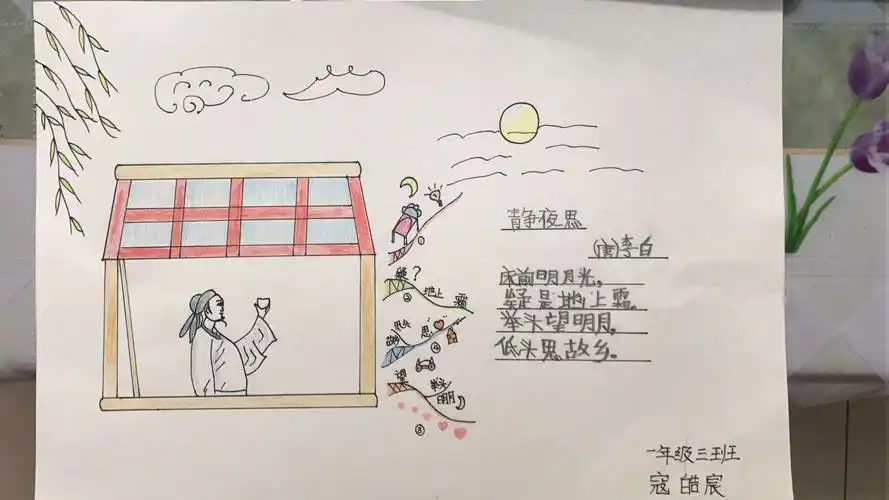 静夜思
(唐)李白
床前明月光,
疑是地上霜。
举头望明月,
低头思故乡。
①
疑?
② 地上 霜
低头 思
故乡
④
望
举头
明月
③
一年级三班王
寇皓宸